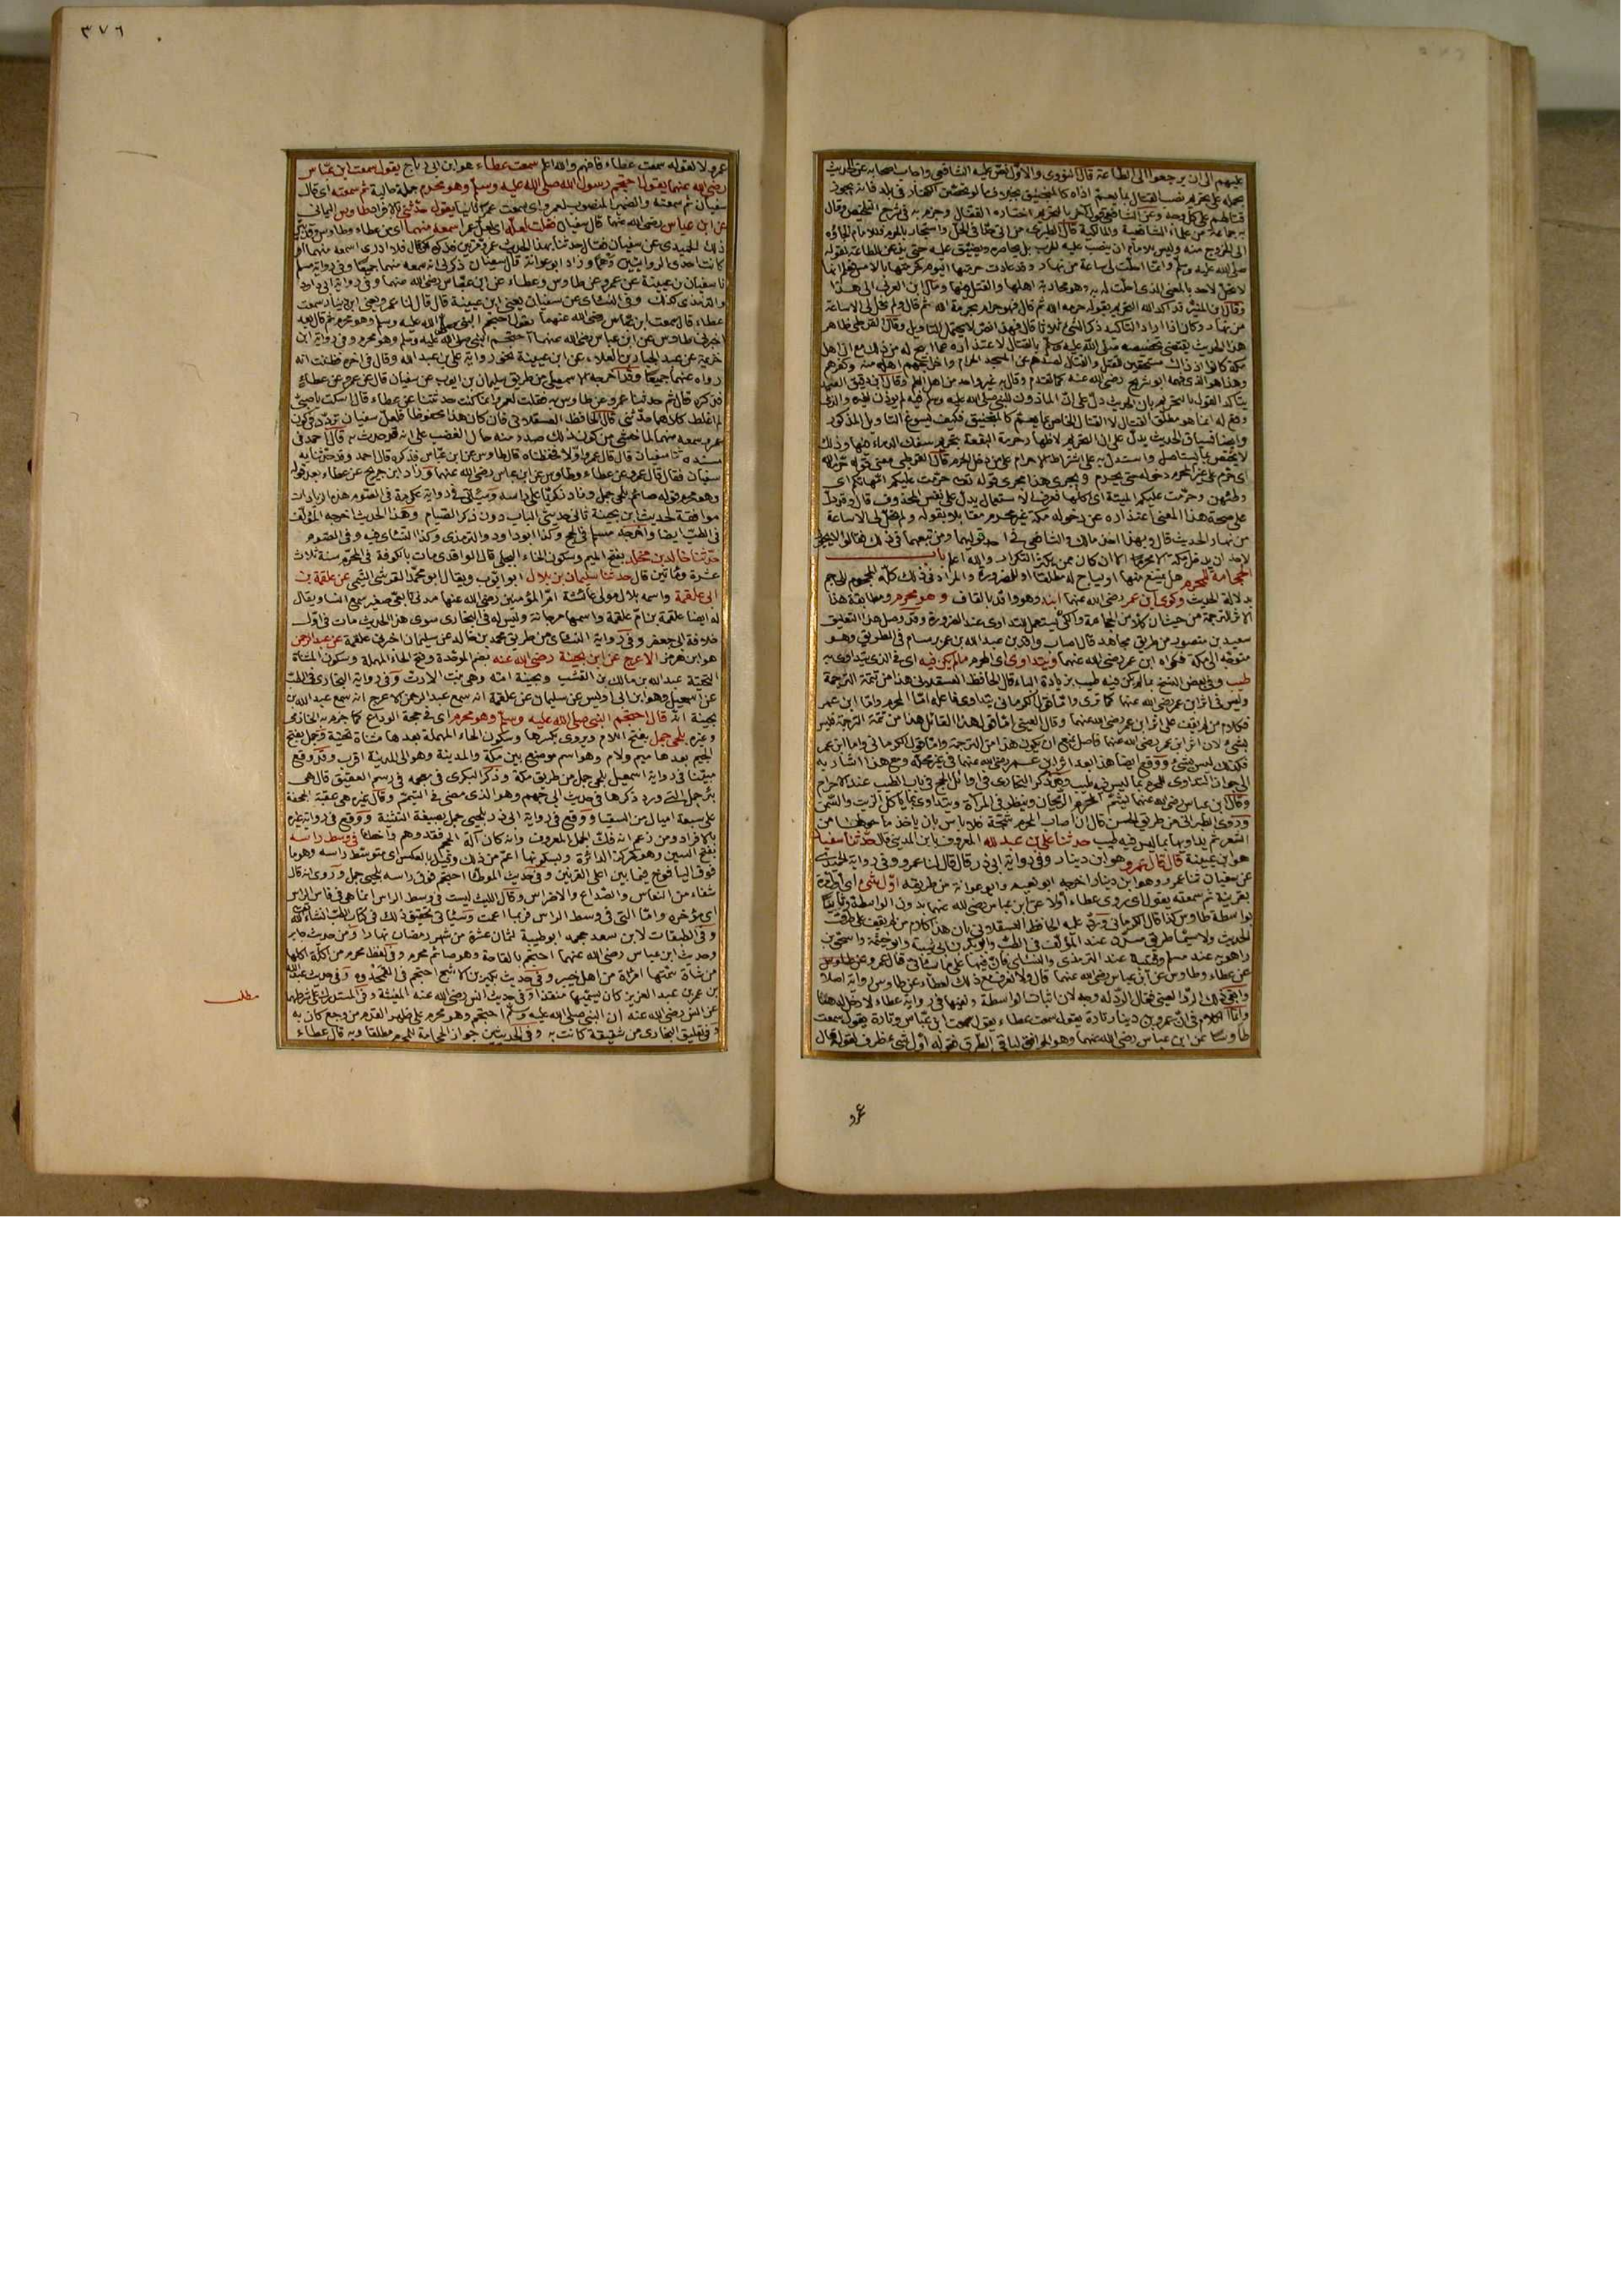 عليهم الى ان يرجعوا الى الطاعة قال النووى والاول نص عليه الشافعى واجاب اصحابه عن الحديث
بحمله على تحريم نصب القتال بما يعم اذاه كالمنجنيق بخلاف ما لو تحصن الكفار فى بلد فانه يجوز
قتالهم على كل وجه وعن الشافعى قول آخر بالتحريم اختاره القفال وجزم به فى شرح التلخيص وقال
به جماعة من علماء الشافعية والمالكية قال الطبرى من اتى حدا فى الحل واستجار بالحرم فللامام الجاؤه
الى الخروج منه وليس للامام ان ينصب عليه الحرب بل يحاصره ويضيق عليه حتى يذعن للطاعة لقوله
صلى الله عليه وسلم وانما احلت لى ساعة من نهار وقد عادت حرمتها اليوم كحرمتها بالامس فعلم انها
لا تحل لاحد بالمعنى الذى احلت له به وهو محاربة اهلها والقتل فيها ومال ابن العربى الى هذا
وقال ابن المنير قد اكد التحريم بقوله حرمه الله ثم قال فهو حرام بحرمة الله ثم قال ولم تحل لى الا ساعة
من نهار وكان اذا اراد التاكيد ذكر الشئ ثلاثا قال فهذا نص لا يحتمل التاويل وقال القرطبى ظاهر
هذا الحديث يقتضى تخصيصه صلى الله عليه وسلم بالقتال لاعتذاره عما ابيح له من ذلك مع ان اهل
مكة كانوا اذ ذاك مستحقين للقتل والقتال لصدهم عن المسجد الحرام واخراجهم اهله منه وكفرهم
وهذا هو الذى فهمه ابو شريح رضى الله عنه كما تقدم وقال به غير واحد من اهل العلم وقال ابن دقيق العيد
يتاكد القول بالتحريم بان الحديث دل على ان الماذون للنبى صلى الله عليه وسلم فيه لم يؤذن لغيره والذى
وقع له انما هو مطلق القتال لا القتال الخاص بما يعم كالمنجنيق فكيف يسوغ التاويل المذكور
وايضا فسياق الحديث يدل على ان التحريم لاظهار حرمة البقعة بتحريم سفك الدماء فيها وذلك
لا يختص بما يستاصل واستدل به على اشتراط الاحرام على من دخل الحرم قال القرطبى معنى قوله حرمه الله
اى حرم على غير المحرم دخوله حتى يحرم ويجرى هذا مجرى قوله تعالى حرمت عليكم امهاتكم اى
وطئهن وحرمت عليكم الميتة اى اكلها فعرف الاستعمال يدل على تعيين المحذوف قال وقد دل
على صحة هذا المعنى اعتذاره عن دخوله مكة غير محرم مقاتلا بقوله ولم تحل لى الا ساعة
من نهار الحديث قال وبهذا اخذ مالك والشافعى فى احد قوليهما ومن تبعهما فى ذلك فقالوا لا يجوز
لاحد ان يدخل مكة الا محرما الا ان كان ممن يكثر التكرار والله اعلم باب
الحجامة للمحرم هل يمنع منها او يباح له مطلقا او للضرورة والمراد فى ذلك كله المحجوم لا الحاجم
بدلالة الحديث وكوى ابن عمر رضى الله عنهما ابنه وهو واقد بالقاف وهو محرم ومطابقة هذا
الاثر للترجمة من حيث ان كلا من الحجامة والكى يستعمل للتداوى عند الضرورة وقد وصل هذا التعليق
سعيد بن منصور من طريق مجاهد قال اصاب واقد بن عبد الله بن عمر برسام فى الطريق وهو
متوجه الى مكة فكواه ابن عمر رضى الله عنهما ويتداوى اى المحرم ما لم يكن فيه اى فى الذى يتداوى به
طيب وفى بعض النسخ بما لم يكن فيه طيب بزيادة الباء قال الحافظ العسقلانى هذا من تتمة الترجمة
وليس فى اثر ابن عمر رضى الله عنهما كما ترى واما قول الكرمانى يتداوى فاعله اما المحرم واما ابن عمر
فكلام من لم يقف على اثر ابن عمر رضى الله عنهما وقال العينى اما قول هذا القائل هذا من تتمة الترجمة فليس
بشئ لان اثر ابن عمر رضى الله عنهما فاصل يمنع ان يكون هذا من الترجمة واما قول الكرمانى واما ابن عمر
فكذلك ليس بشئ ووقع ايضا هذا بعد اثر ابن عمر رضى الله عنهما فى غير محله ومع هذا اشار به
الى جواز التداوى للمحرم بما ليس فيه طيب وقد ذكر البخارى فى اوائل الحج فى باب الطيب عند الاحرام
وقال ابن عباس رضى الله عنهما يشم المحرم الريحان وينظر فى المرآة ويتداوى بما ياكل الزيت والسمن
وروى الطبرانى من طريق الحسن قال ان اصاب المحرم شجة فلا باس بان ياخذ ما حولها من
الشعر ثم يداويها بما ليس فيه طيب حدثنا على بن عبد الله المعروف بابن المدينى قال حدثنا سفيان
هو ابن عيينة قال قال عمرو وهو ابن دينار وفى رواية ابى ذر قال قال لنا عمرو وفى رواية الحميدى
عن سفيان ثنا عمرو وهو ابن دينار اخرجه ابو نعيم وابو عوانة من طريقه اول شئ اى اول مرة
بقرينة ثم سمعته يقول اى روى عطاء اولا عن ابن عباس رضى الله عنهما بدون الواسطة وثانيا
بواسطة طاوس كذا قال الكرمانى ورد عليه الحافظ العسقلانى بان هذا كلام من لم يقف على طرق
الحديث ولا سيما طريق مسدد عند المؤلف فى الطب وابو بكر بن ابى شيبة وابو خيثمة واسحق بن
راهويه عند مسلم وقتيبة عند الترمذى والنسائى فان فيها على ما سيأتى قال عمرو عن طاوس
عن عطاء وطاوس عن ابن عباس رضى الله عنهما قال ولا نعرف مع ذلك لعطاء عن طاوس رواية اصلا
واما الكلام فى ان عمرو بن دينار تارة يقول سمعت عطاء يقول سمعت ابن عباس وتارة يقول سمعت
طاوسا عن ابن عباس رضى الله عنهما وهو الموافق لباقى الطرق فقوله اول شئ ظرف لقوله قال
عمرو
٣٧٦
عمرو لا لقوله سمعت عطاء فافهم والله اعلم سمعت عطاء هو ابن ابى رباح يقول سمعت ابن عباس
رضى الله عنهما يقول احتجم رسول الله صلى الله عليه وسلم وهو محرم جملة حالية ثم سمعته اى قال
سفيان ثم سمعته والضمير المنصوب لعمرو اى سمعت عمرا ثانيا يقول حدثنى بالافراد طاوس اليمانى
عن ابن عباس رضى الله عنهما قال سفيان فقلت لعله اى لعل عمرا سمعه منهما اى من عطاء وطاوس وقد بين
ذلك الحميدى عن سفيان فقال حدثنا بهذا الحديث عمرو مرتين فذكره فقال فلا ادرى اسمعه منهما او
كانت احدى الروايتين وهما وزاد ابو عوانة قال سفيان ذكر لى انه سمعه منهما جميعا وفى رواية مسلم
نا سفيان بن عيينة عن عمرو عن طاوس وعطاء عن ابن عباس رضى الله عنهما وفى رواية ابى داود
والترمذى كذلك وفى النسائى عن سفيان يعنى ابن عيينة قال قال لنا عمرو يعنى ابن دينار سمعت
عطاء قال سمعت ابن عباس رضى الله عنهما يقول احتجم النبى صلى الله عليه وسلم وهو محرم ثم قال بعد
اخبرنى طاوس عن ابن عباس رضى الله عنهما احتجم النبى صلى الله عليه وسلم وهو محرم وفى رواية ابن
خزيمة عن عبد الجبار بن العلاء عن ابن عيينة نحو رواية على بن عبد الله وقال فى آخره فظننت انه
رواه عنهما جميعا وقد اخرجه الاسمعيلى من طريق سليمان بن ايوب عن سفيان قال عن عمرو عن عطاء
فذكره قال ثم حدثنا عمرو عن طاوس به فقلت لعمرو انما كنت حدثتنا عن عطاء قال اسكت يا صبى
لم اغلط كلاهما حدثنى قال الحافظ العسقلانى فان كان هذا محفوظا فلعل سفيان تردد فى كون
عمرو سمعه منهما لما خشى من كون ذلك صدر منه حال الغضب على انه قد حدث به قال احمد فى
مسنده ثنا سفيان قال قال عمرو اولا فحفظناه قال طاوس عن ابن عباس فذكره قال احمد وقد حدثنا به
سفيان فقال قال عمرو عن عطاء وطاوس عن ابن عباس رضى الله عنهما وزاد ابن جريج عن عطاء بعد قوله
وهو محرم قوله صائم بلحى جمل وزاد زكريا على راسه وسيأتى فى رواية عكرمة فى الصوم هذه الزيادات
موافقة لحديث ابن بحينة ثانى حديثى الباب دون ذكر الصيام وهذا الحديث اخرجه المؤلف
فى الطب ايضا واخرجه مسلم فى الحج وكذا ابو داود والترمذى وكذا النسائى فيه وفى الصوم
حدثنا خالد بن مخلد بفتح الميم وسكون الخاء البجلى قال الواقدى مات بالكوفة فى المحرم سنة ثلاث
عشرة ومائتين قال حدثنا سليمان بن بلال ابو ايوب ويقال ابو محمد القرشى التيمى عن علقمة بن
ابى علقمة واسمه بلال مولى عائشة ام المؤمنين رضى الله عنها مدنى تابعى صغير سمع انسا ويقال
له ايضا علقمة بن ام علقمة واسمها مرجانة وليس له فى البخارى سوى هذا الحديث مات فى اول
خلافة ابى جعفر وفى رواية النسائى من طريق محمد بن خالد عن سليمان اخبرنى علقمة عن عبد الرحمن
هو ابن هرمز الاعرج عن ابن بحينة رضى الله عنه بضم الموحدة وفتح الحاء المهملة وسكون المثناة
التحتية عبد الله بن مالك بن القشب وبحينة امه وهى بنت الارت وفى رواية البخارى فى الطب
عن اسمعيل وهو ابن ابى اويس عن سليمان عن علقمة انه سمع عبد الرحمن الاعرج انه سمع عبد الله بن
بحينة انه قال احتجم النبى صلى الله عليه وسلم وهو محرم اى فى حجة الوداع كما جزم به الحازمى
وغيره بلحى جمل بفتح اللام ويروى بكسرها وسكون الحاء المهملة بعدها مثناة تحتية وجمل بفتح
الجيم بعدها ميم ولام وهو اسم موضع بين مكة والمدينة وهو الى المدينة اقرب وقد وقع
مبينا فى رواية اسمعيل بلحى جمل من طريق مكة وذكر البكرى فى معجمه فى رسم العقيق قال هى
بئر جمل التى ورد ذكرها فى حديث ابى جهم وهو الذى مضى فى التيمم وقال غيره هى عقبة الجحفة
على سبعة اميال من السقيا ووقع فى رواية ابى ذر بلحيى جمل بصيغة التثنية ووقع فى رواية غيره
بالافراد ومن زعم انه فك الجمل المعروف وانه كان آلة الحجم فقد وهم واخطأ فى وسط راسه
بفتح السين وهو كمركز الدائرة وبسكونها اعم من ذلك وقيل بالعكس اى متوسط راسه وهو ما
فوق اليافوخ فيما بين اعلى القرنين وفى حديث الموطأ احتجم فوق راسه بلحيى جمل وروى انه قال
شفاء من النعاس والصداع والاضراس وقال الليث ليست فى وسط الراس انما هى فى فاس الراس
اى مؤخره واما التى فى وسط الراس فربما اعمت وسيأتى تحقيق ذلك فى كتاب الطب ان شاء الله تعالى
وفى الطبقات لابن سعد حجمه ابو طيبة لثمان عشرة من شهر رمضان نهارا ومن حديث جابر
وحديث ابن عباس رضى الله عنهما احتجم بالقاحة وهو صائم محرم وفى لفظ محرم من اكلة اكلها
من شاة سمتها امرأة من اهل خيبر وفى حديث بكير بن الاشج احتجم فى القمحدوة وفى حديث عبد الله
بن عمر بن عبد العزيز كان يسميها منقذا وفى حديث انس رضى الله عنه المغيثة وفى المستدرك على شرطهما
عن انس رضى الله عنه ان النبى صلى الله عليه وسلم احتجم وهو محرم على ظهر القدم من وجع كان به
وفى تعليق البخارى من شقيقة كانت به وفى الحديثين جواز الحجامة للمحرم مطلقا وبه قال عطاء
مطلب